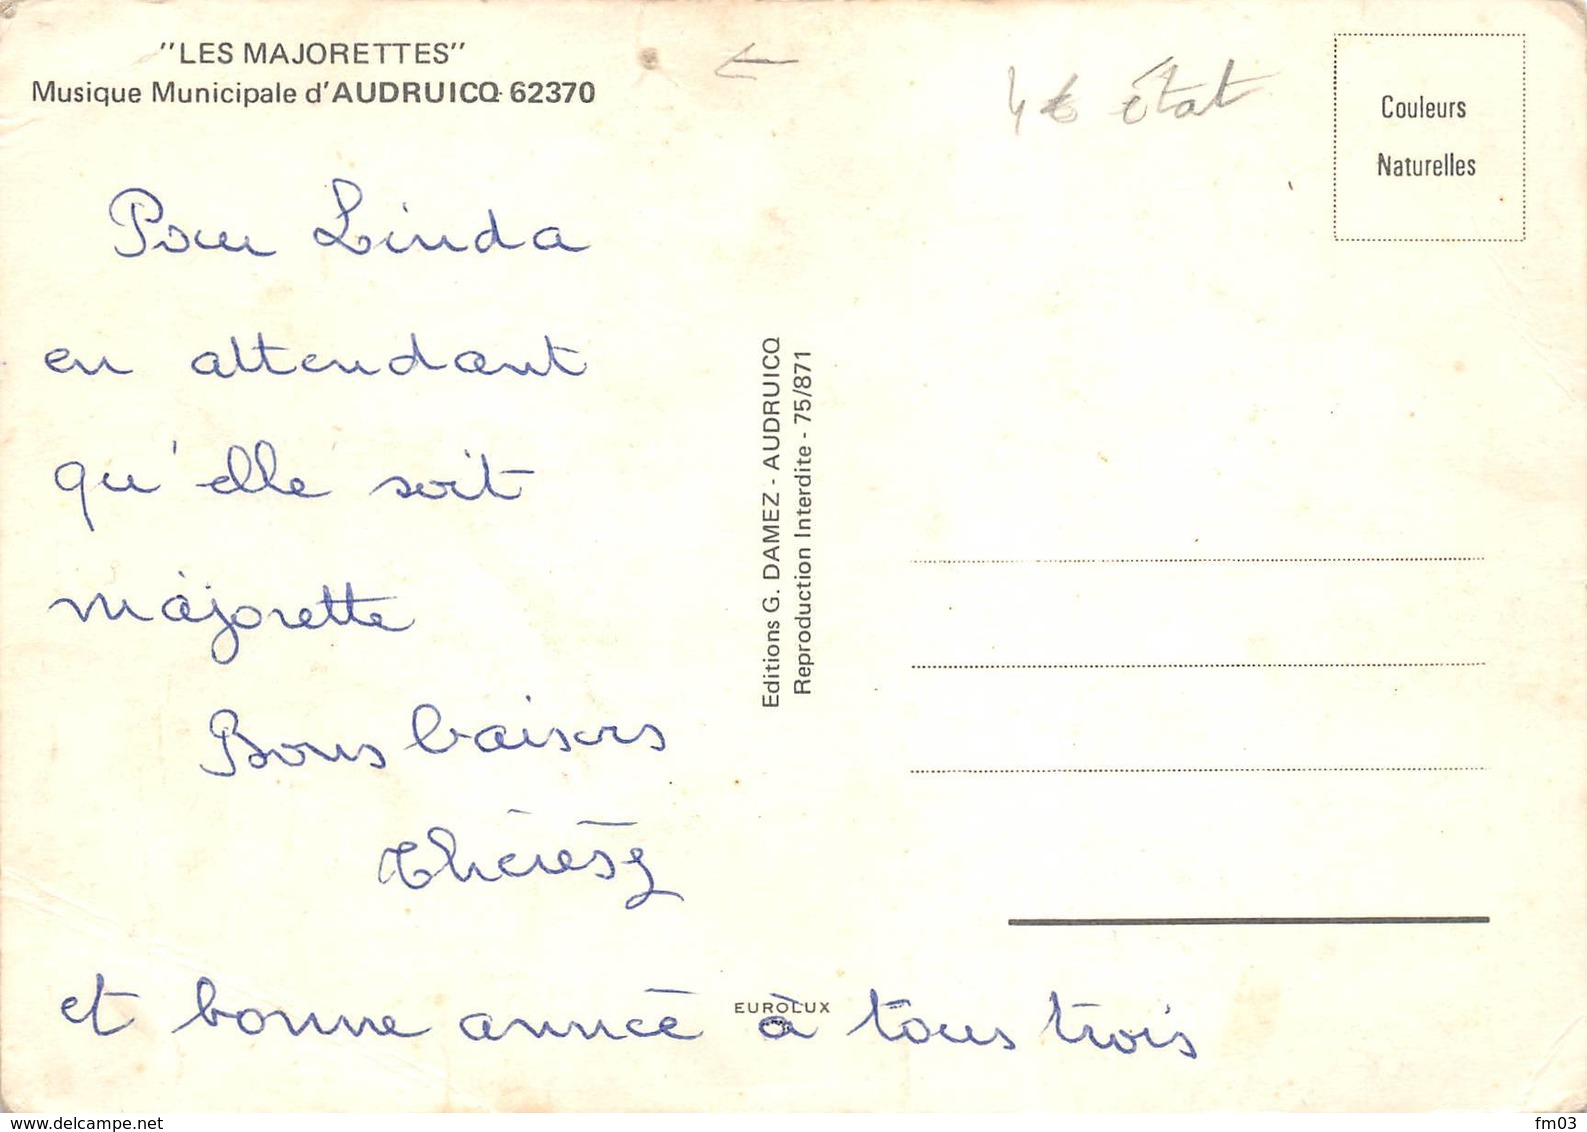 "LES MAJORETTES"
Musique Municipale d'AUDRUICQ 62370
4€ état
Couleurs
Naturelles
Pour Linda
en attendant
qu'elle soit
majorette
Bons baisers
Thérèse
et bonne année à tous trois
Editions G. DAMEZ - AUDRUICQ
Reproduction Interdite - 75/871
EUROLUX
www.delcampe.net
fm03